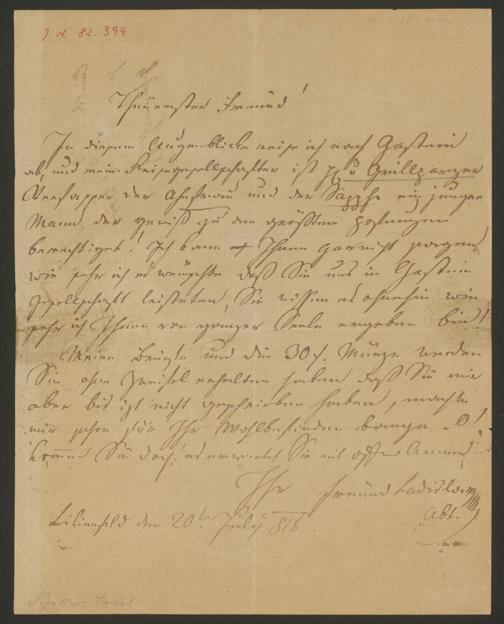 J.N. 82.394
Theuerster Freund!
In diesem Augenblicke reise ich nach Gastein
ab, und mein Reisegesellschafter ist H. v Grillparzer
Verfasser der Ahnfrau und der Sappho ein junger
Mann der gewiß zu den größten Hofnungen
berechtiget! Ich kann Ihnen gar nicht sagen,
wie sehr ich es wünschte daß Sie uns in Gastein
Gesellschaft leisteten, Sie wissen es ohnehin wie
sehr ich Ihnen von ganzer Seele ergeben bin!
Meine Briefe und die 30 f. Münze werden
Sie ohne Zweifel erhalten haben daß Sie mir
aber bis izt nicht geschrieben haben, machte
mir schon für Ihr Wohlbefinden bange. O!
kommen Sie doch! es erwartet Sie mit offenen Armen
Ihr Freund Ladislaus
Abt.
Lilienfeld den 20ten July 818